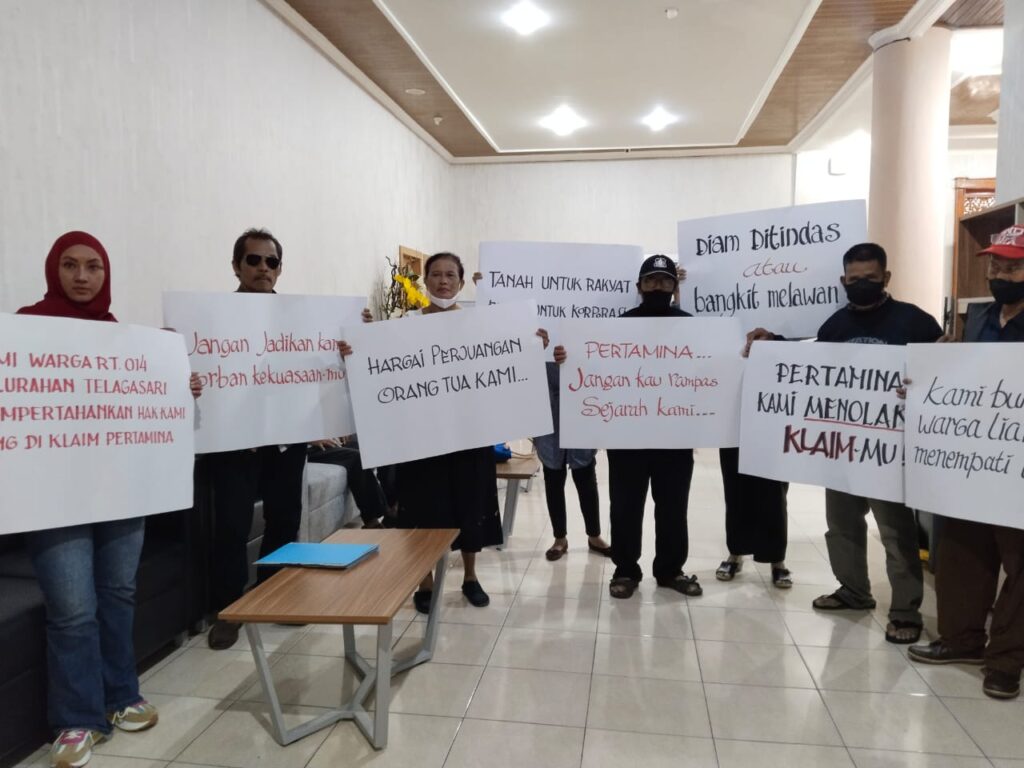 MI WARGA RT. 014
LURAHAN TELAGASARI
MPERTAHANKAN HAK KAMI
NG DI KLAIM PERTAMINA
Jangan Jadikan kam
korban kekuasaan-mu
HARGAI PERJUANGAN
ORANG TUA KAMI...
TANAH UNTUK RAKYAT
UNTUK KORPORASI
PERTAMINA...
Jangan kau rampas
Sejarah kami...
Diam Ditindas
atau
bangkit melawan
PERTAMINA
KAMI MENOLAK
KLAIM-MU
Kami bu
warga lia
menempati